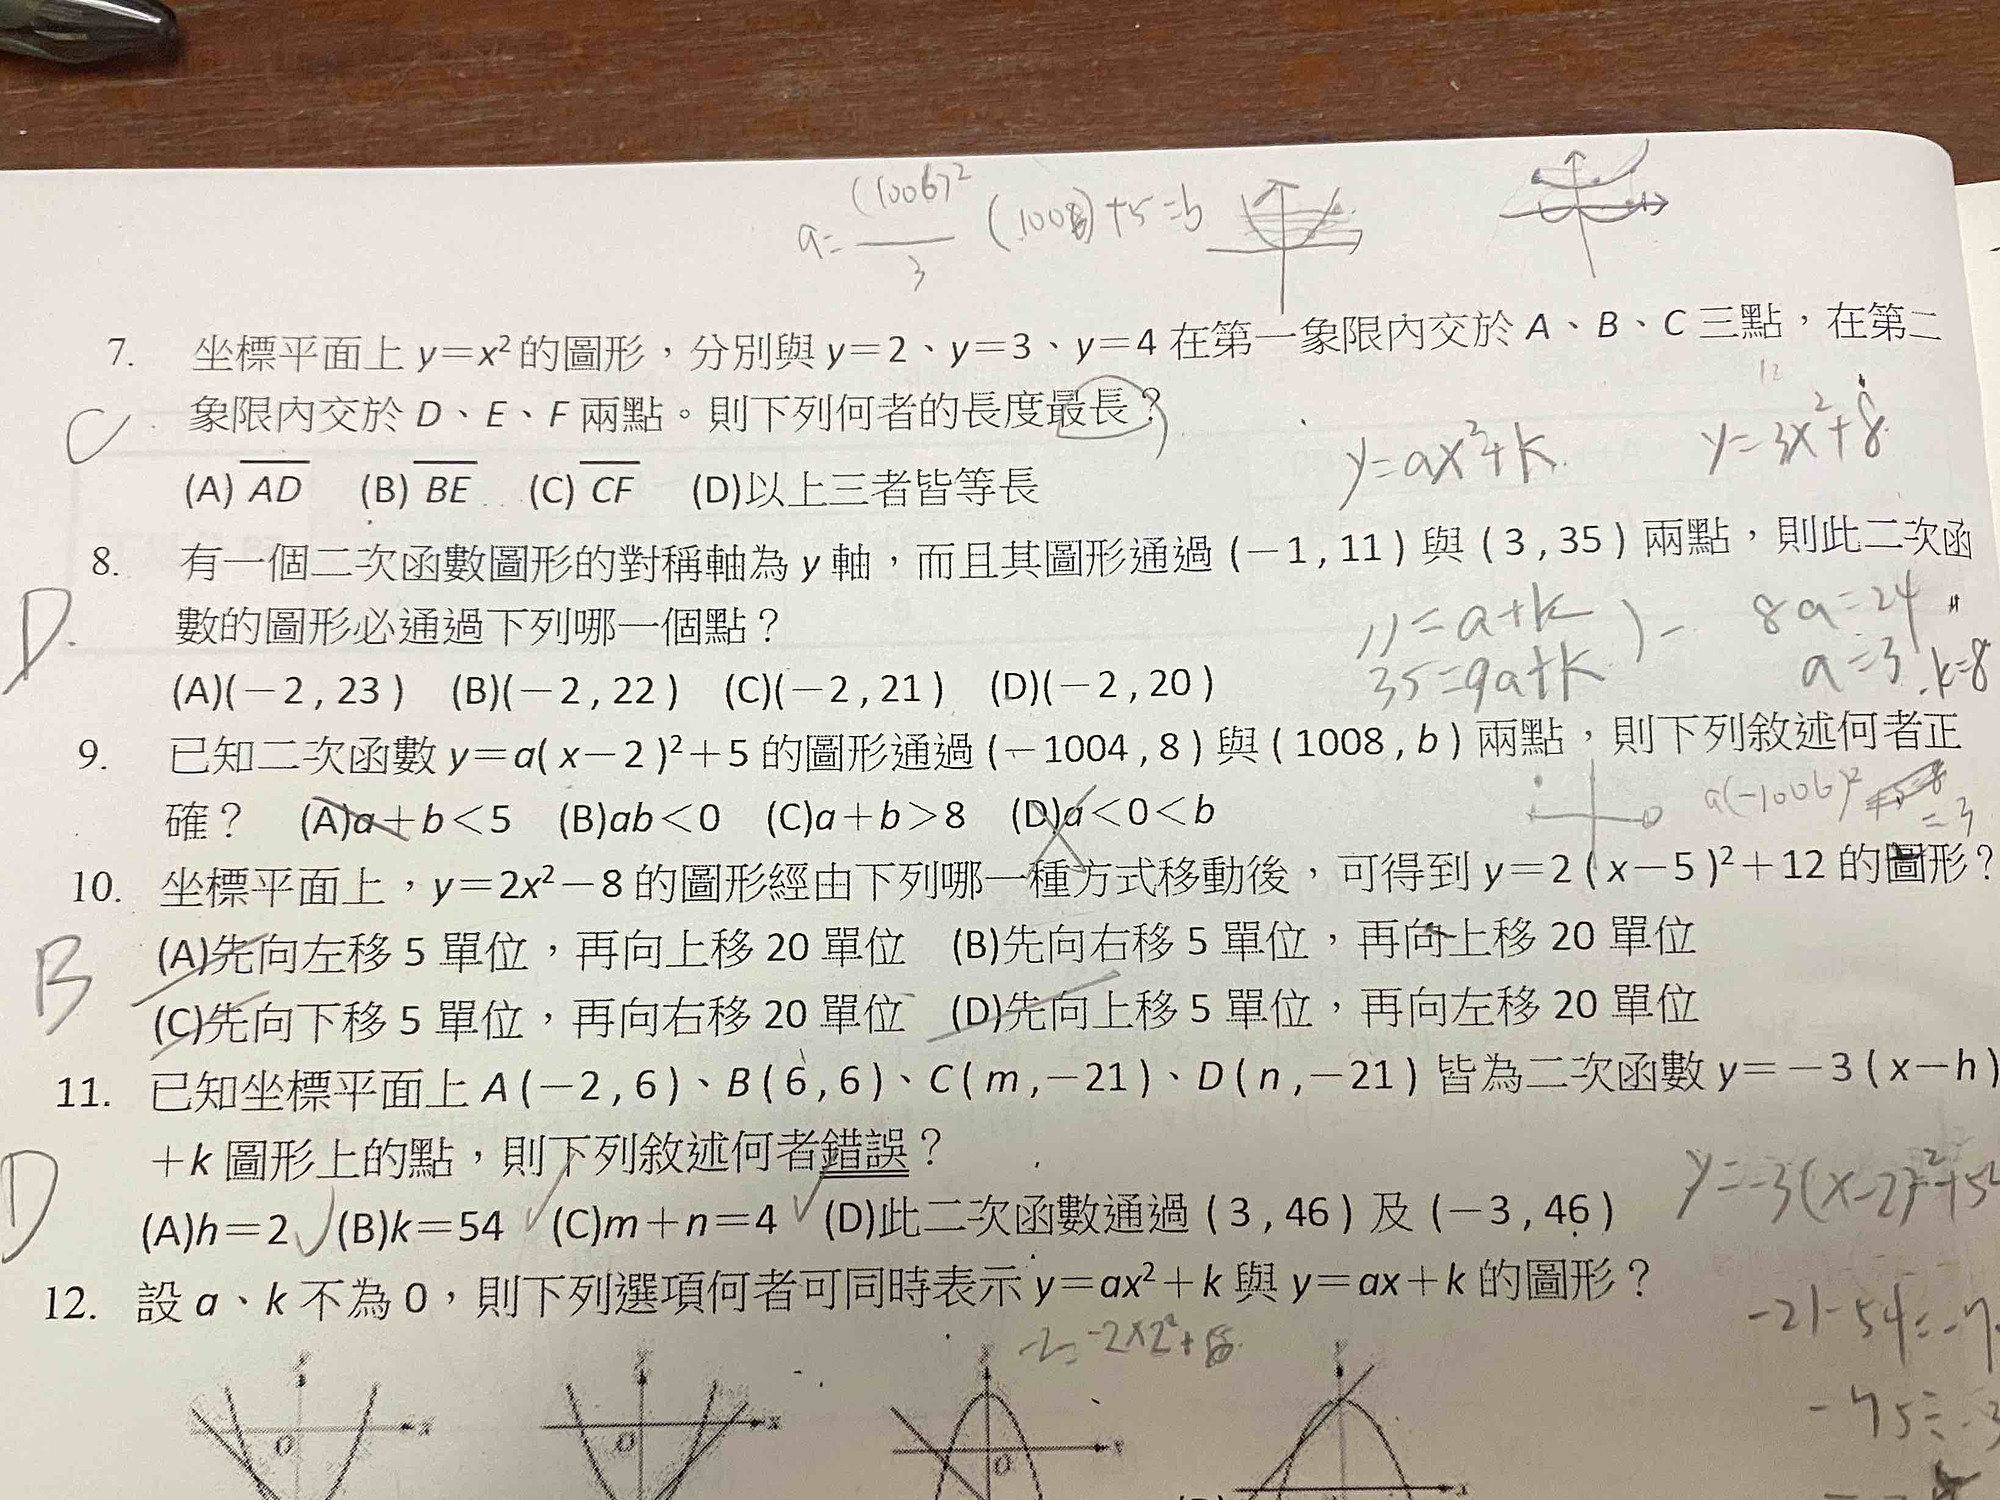 (1006)²
a= ── (1008)+5=b
3
7. 坐標平面上 y＝x²的圖形，分別與 y＝2、y＝3、y＝4 在第一象限內交於 A、B、C 三點，在第二
象限內交於 D、E、F 兩點。則下列何者的長度最長？
C
(A) AD (B) BE (C) CF (D)以上三者皆等長
y=ax²+k y=3x²+8
8. 有一個二次函數圖形的對稱軸為 y 軸，而且其圖形通過 (－1 , 11 ) 與 ( 3 , 35 ) 兩點，則此二次函
D. 數的圖形必通過下列哪一個點？
11=a+k 8a=24
35=9a+k a=3 k=8
(A)(－2 , 23 ) (B)(－2 , 22 ) (C)(－2 , 21 ) (D)(－2 , 20 )
9. 已知二次函數 y＝a( x－2 )²＋5 的圖形通過 (－1004 , 8 ) 與 ( 1008 , b ) 兩點，則下列敘述何者正
確？ (A)a＋b＜5 (B)ab＜0 (C)a＋b＞8 (D)a＜0＜b
a(-1006)²
=3
10. 坐標平面上，y＝2x²－8 的圖形經由下列哪一種方式移動後，可得到 y＝2 ( x－5 )²＋12 的圖形？
B
(A)先向左移 5 單位，再向上移 20 單位 (B)先向右移 5 單位，再向上移 20 單位
(C)先向下移 5 單位，再向右移 20 單位 (D)先向上移 5 單位，再向左移 20 單位
11. 已知坐標平面上 A (－2 , 6 )、B ( 6 , 6 )、C ( m ,－21 )、D ( n ,－21 ) 皆為二次函數 y＝－3 ( x－h )
＋k 圖形上的點，則下列敘述何者錯誤？
D
y=-3(x-2)²+5
(A)h＝2 (B)k＝54 (C)m＋n＝4 (D)此二次函數通過 ( 3 , 46 ) 及 (－3 , 46 )
12. 設 a、k 不為 0，則下列選項何者可同時表示 y＝ax²＋k 與 y＝ax＋k 的圖形？
-21-54=-7
-75÷-3
-2=-2×2²+
y y y y
x O x O x O x